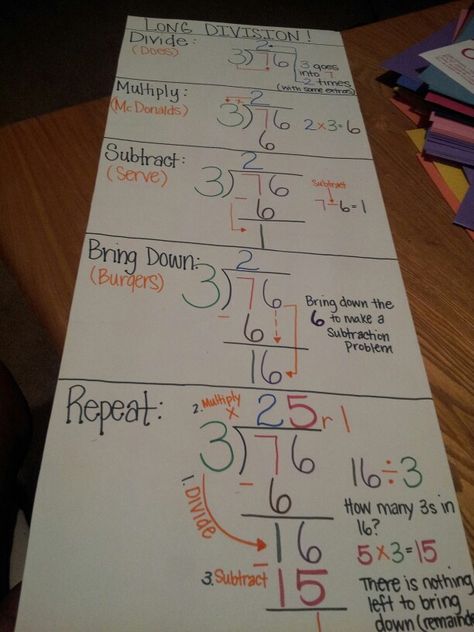 LONG DIVISION!
Divide:
(Does)
2
3)76
3 goes
into 7
2 times
(with some extras)
Multiply:
(McDonalds)
2
3)76
6
2x3=6
Subtract:
(Serve)
2
3)76
-6
1
Subtract
7-6=1
Bring Down:
(Burgers)
2
3)76
-6
16
Bring down the
6 to make a
Subtraction
Problem
Repeat:
2. Multiply
x
25 r1
3)76
-6
1. Divide
16
3. Subtract
-15
1
16÷3
How many 3s in
16?
5x3=15
There is nothing
left to bring
down